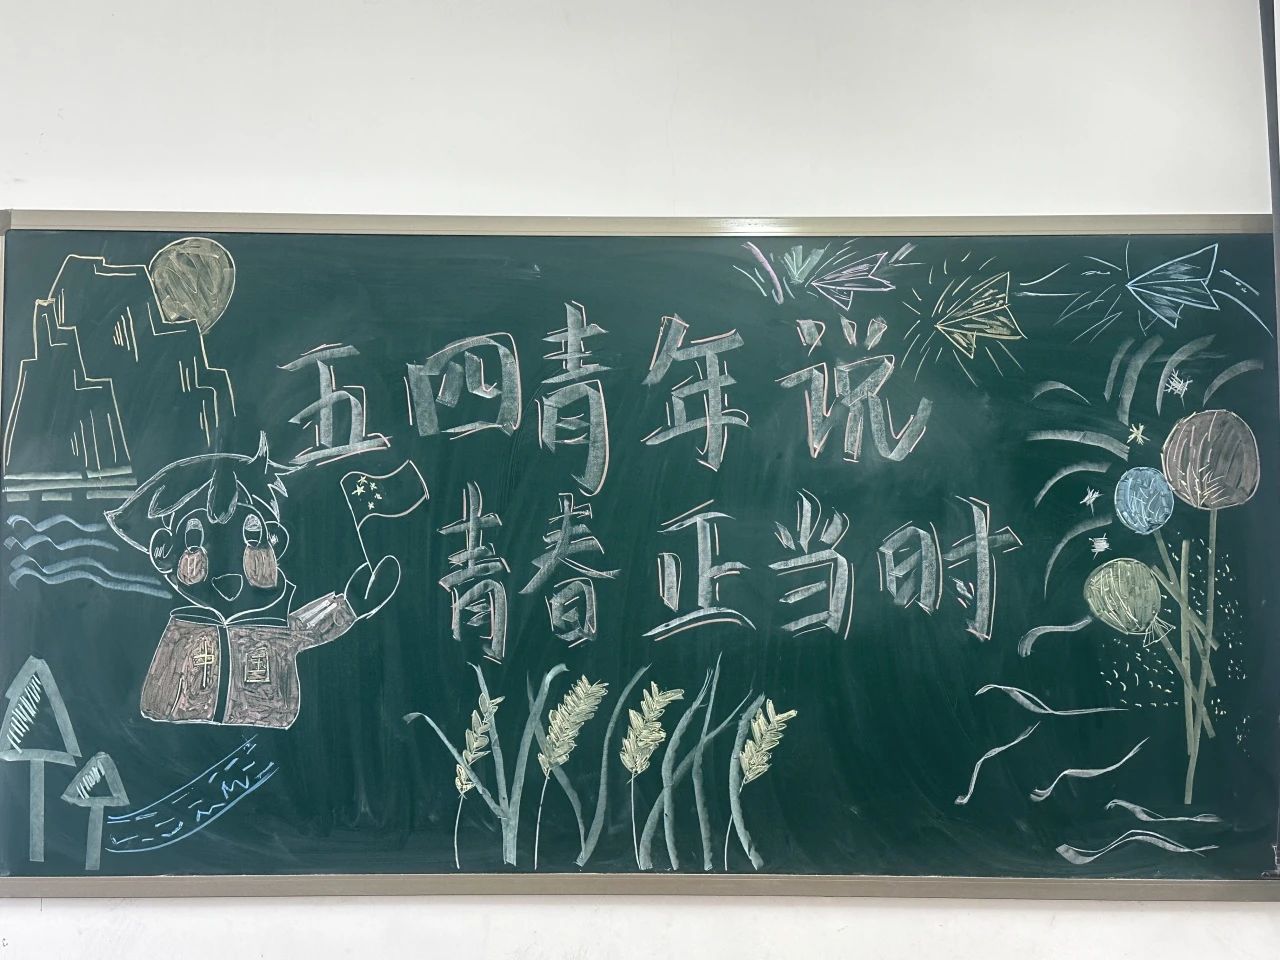 五四青年说
青春正当时
中国